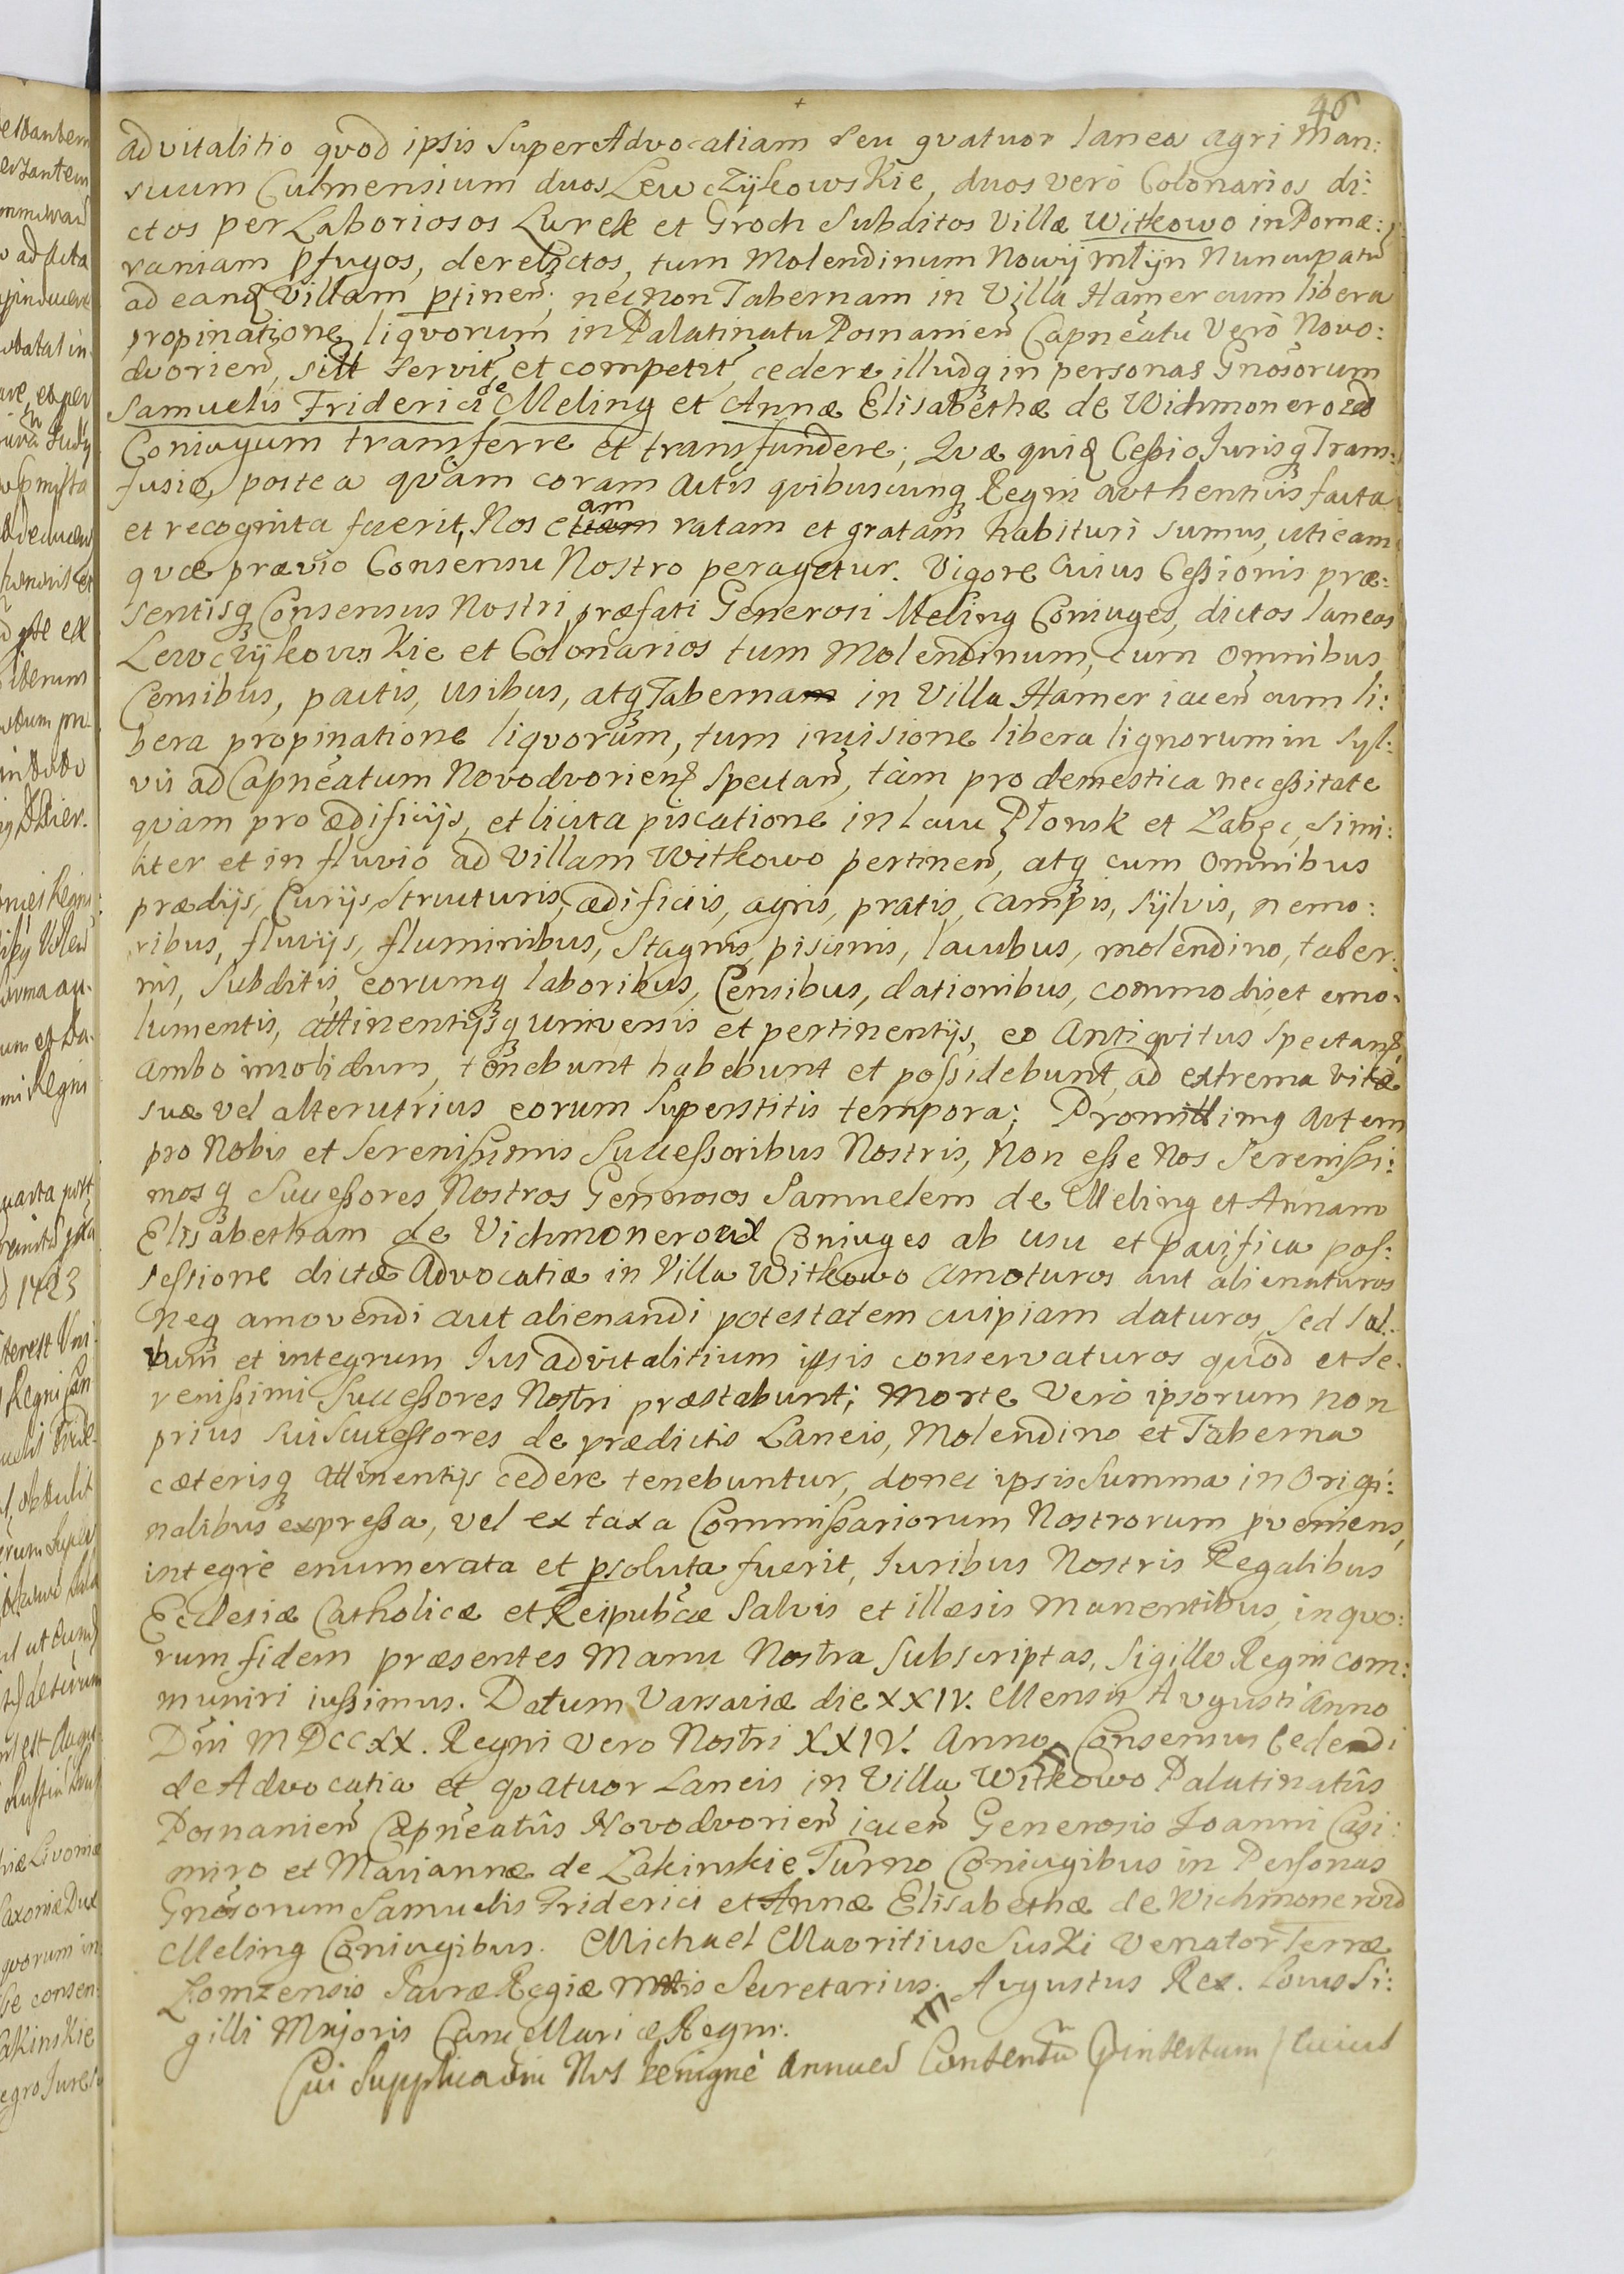 46
advitalitio qvod ipsis Super Advocatiam seu qvatuor laneos agri Man:
suum Culmensium duos Lewczÿkowskie, duos verò Colonarios di:
ctos per Laboriosos Lurek et Groch Subditos Villæ Witkowo in Pomæ:
raniam pfugos, derelictos, tum Molendinum Nowÿ Młÿn Nuncupatũ
ad eandẽ Villam ptinen̄; necnon Tabernam in Villa Hamer cum libera
propinatione liqvorum in Palatinatu Posnanien̄ Capn̄eatu Verò Novo:
dvorien̄, sitt servit, et competit, cedere illudq in personas Gnōsorum
Samuelis Friderici de Meling et Annæ Elisabethæ de Wichmonerowd
Coniugum transferre et transfundere; Qvæ quiđ Ceßio Jurisq Trans:
fusio, postea qvam coram Actis qvibuscunq Regni avthenticis facta
et recognita fuerit, Nos etiam eam ratam et gratam habituri sumus, uti eam
qvæ prævio Consensu Nostro peragetur. Vigore Cuius Ceßionis præ:
sentisq Consensus Nostri præfati Generosi Meling Coniuges, dictos laneos
Lewczÿkowskie et Colonarios tum Molendinum, cum omnibus
Censibus, pactis, Usibus, atq Taberna in Villa Hamer iacen̄ cum li:
bera propinatione liqvorum, tum incisione libera lignorum in Syl:
vis ad Capn̄eatum Novodvorien̄ Spectan̄, tàm pro demestica neceßitate
qvam pro ædificijs, et licita piscatione in lacu Płonsk et Łabęc, Simi:
liter et in fluvio ad Villam Witkowo pertinen̄, atq cum Omnibus
prædijs, Curijs, Structuris, ædificiis, agris, pratis, campis, sÿlvis, nemo:
ribus, fluvijs, fluminibus, Stagnis, piscinis, lacubus, molendino, taber:
nis, Subditis, eorumq laboribus, Censibus, dationibus, commodis et emo:
lumentis, attinentijsq universis et pertinentijs, eo Antiqvitus Spectan̄,
ambo insolidum, tenebunt habebunt et poßidebunt, ad extrema vitæ
suæ vel alterutrius eorum Superstitis tempora; Promittimq Avtem
pro Nobis et Sereniẞimis Succeßoribus Nostris, Non eße Nos Sereniẞi:
mosq Succeßores Nostros Generosos Samuelem de Meling et Annam
Elisabetham de Vichmonerowd Coniuges ab usu et pacifica pos:
seßione dictæ Advocatiæ in Villa Witkowo amoturos aut alienaturos
Neq amovendi aut alienandi potestatem cuipiam daturos, Sed Sal:
vum et integrum Jus advitalitium ipsis conservaturos quod et Se:
renißimi Succeßores Nostri præstabunt; Morte Verò ipsorum non
prius sui Succeßores de prædictis Laneis, Molendino et Taberna
cæterisq attinentijs cedere tenebuntur, donec ipsis Summa in Origi:
nalibus expreßa, vel ex taxa Commißariorum Nostrorum pveniens,
integrè enumerata et psoluta fuerit, Juribus Nostris Regalibus
Ecclesiæ Catholicæ et Reipub̄cæ Salvis et illæsis Manentibus, in quo:
rum fidem præsentes Manu Nostra Subscriptas, Sigillo Regni com:
muniri iußimus. Datum Varsaviæ die XXIV. Mensis Avgusti Anno
Dn̄i MDCCXX. Regni vero Nostri XXIV. Anno. Consensus Cedendi
de Advocatia et qvatuor Laneis in Villa Witkowo Palatinatûs
Posnanien̄ Capn̄eatûs Novodvorien̄ iacen̄ Generosis Joanni Casi:
miro et Mariannæ de Łakinskie Turno Coniugibus in Personas
Gnōsorum Samuelis Friderici et Annæ Elisabethæ de Wichmonerowd
Meling Coniugibus. Michael Mavritius Suski Venator Terræ
Łomzensis Sacræ Regiæ Mttis Secretarius. Avgustus Rex. Locus Si:
gilli Majoris Cancellariæ Regni.
Cui Supplica͠oni Nos benignè annuen̄ Contentũ